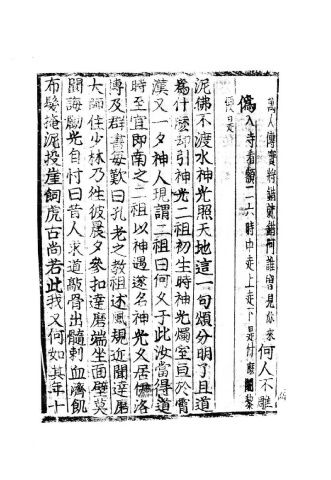 萬人傳實將錯就錯阿誰曾見你來何人不雕
偽入寺看額二六時中走上走下是什麽闍黎
便是
泥佛不渡水神光照天地這一句頌分明了且道
爲什麽却引神光二祖初生時神光燭室亘於霄
漢又一夕神人現謂二祖曰何久于此汝當得道
時至宜即南之二祖以神遇遂名神光久居伊洛
博及群書每歎曰孔老之教祖述風規近聞達磨
大師住少林乃往彼晨夕參扣達磨端坐面壁莫
聞誨勵光自忖曰昔人求道敲骨出髓刺血濟飢
布髮掩泥投崖飼虎古尚若此我又何如其年十